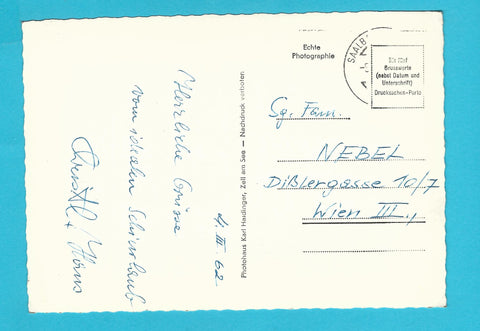 Echte
Photographie
SAALB
Bis fünf
Grussworte
(nebst Datum und
Unterschrift)
Drucksachen-Porto
Herrliche Grüsse
vom idealen Schiurlaub
Christl + Hans
4. III 62
Photohaus Karl Haidinger, Zell am See — Nachdruck verboten
Sg. Fam.
NEBEL
Dißlergasse 10/7
Wien III.,